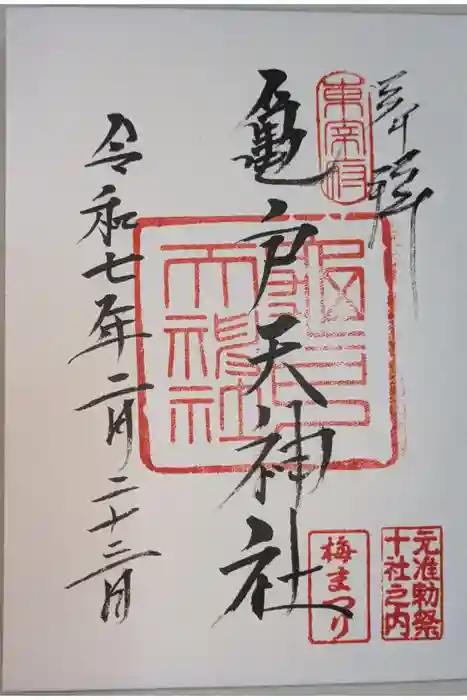 奉拝
東宰府
亀戸天神社
亀戸天神社
令和七年二月二十三日
元准勅祭
十社之内
梅まつり